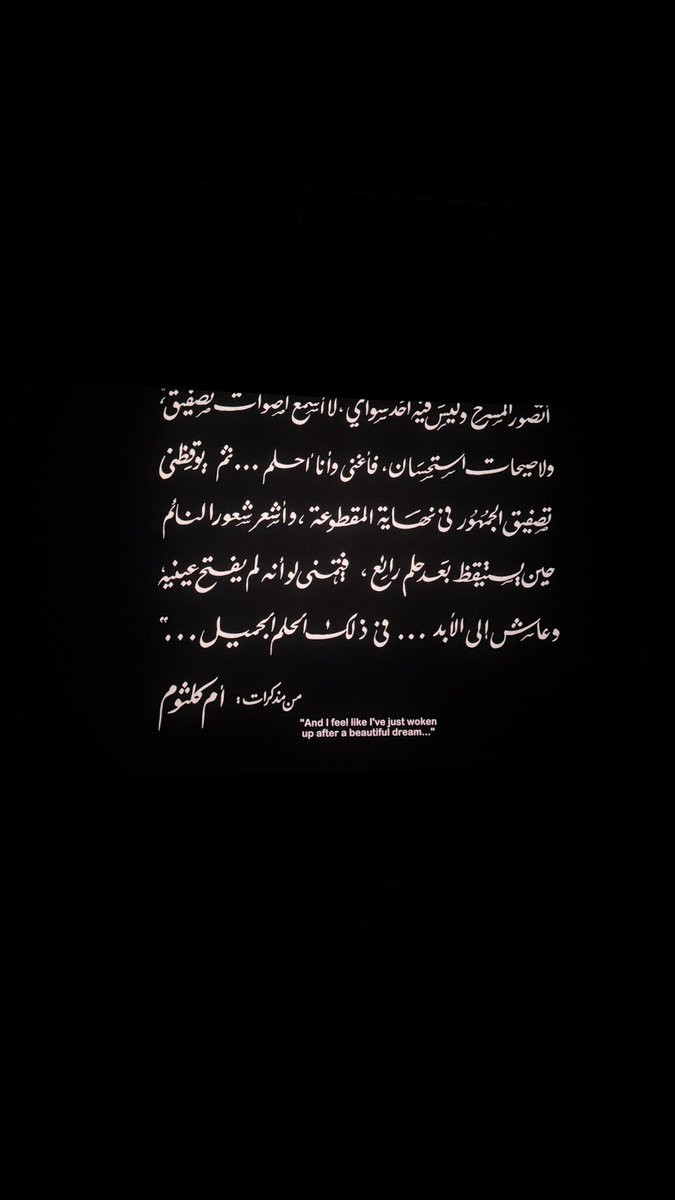 أتصور المسرح وليس فيه أحد سواي، لا أسمع أصوات تصفيق،
ولا صيحات استحسان، فأغنى وأنا أحلم ... ثم يوقظنى
تصفيق الجمهور فى نهاية المقطوعة، وأشعر شعور النائم
حين يستيقظ بعد حلم رائع، فيتمنى لو أنه لم يفتح عينيه
وعاش إلى الأبد ... فى ذلك الحلم الجميل ..."
من مذكرات: أم كلثوم
"And I feel like I've just woken
up after a beautiful dream..."